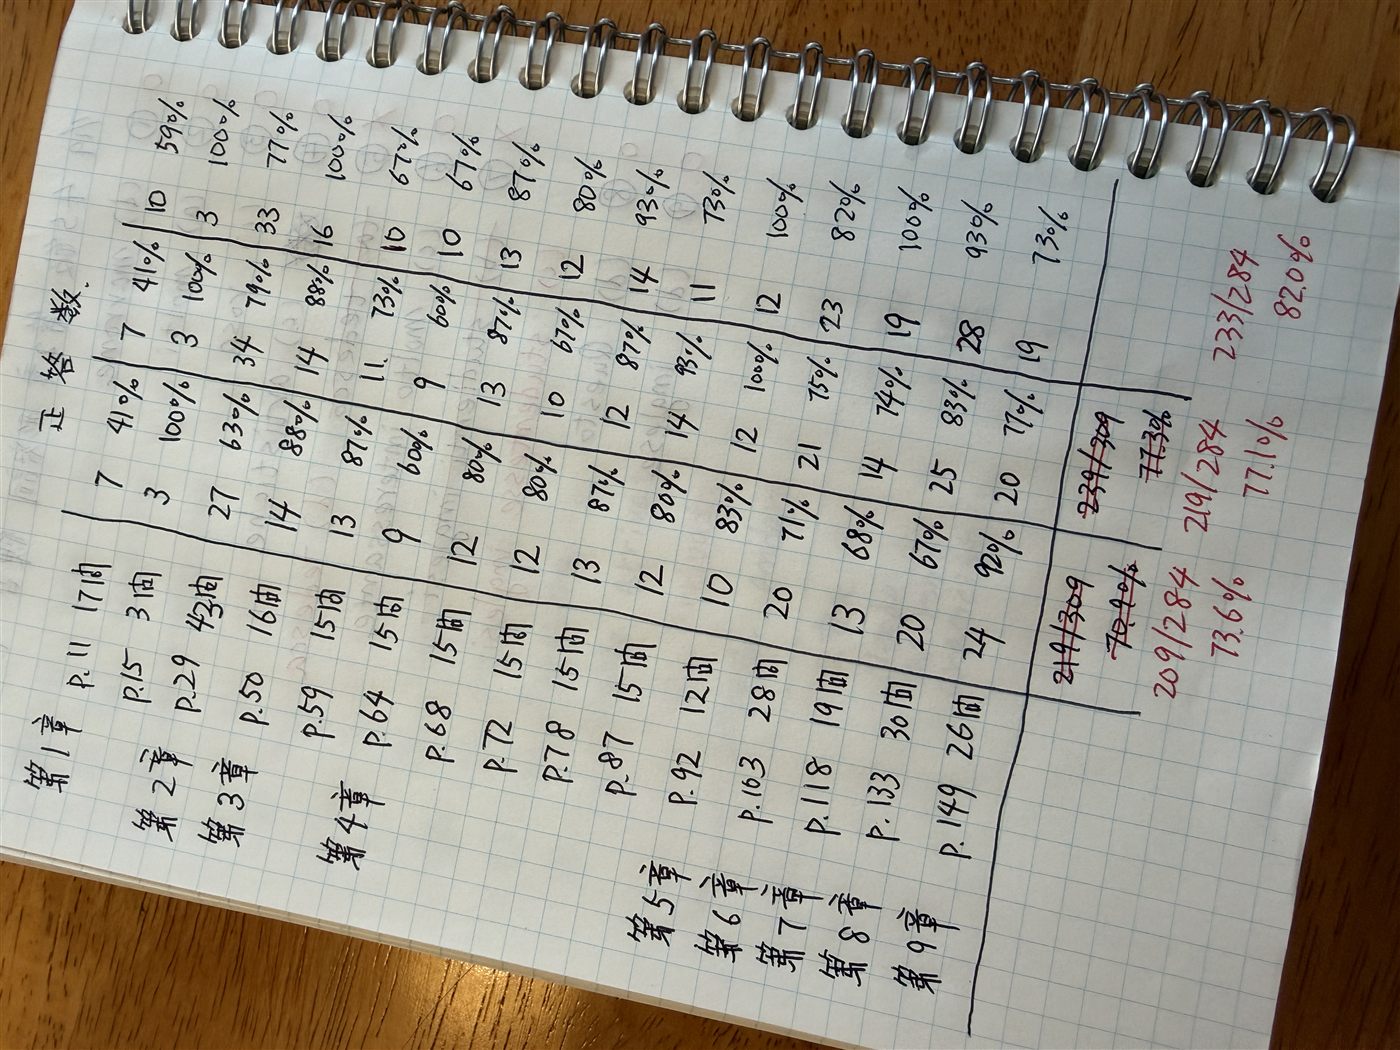 正答数.
第1章 P.11 17問 7 41% 7 41% 10 59%
P.15 3問 3 100% 3 100% 3 100%
第2章 P.29 43問 27 63% 34 79% 33 77%
第3章 P.50 16問 14 88% 14 88% 16 100%
P.59 15問 13 87% 11 73% 10 67%
第4章 P.64 15問 9 60% 9 60% 10 67%
P.68 15問 12 80% 13 87% 13 87%
P.72 15問 12 80% 10 67% 12 80%
P.78 15問 13 87% 12 87% 14 93%
P.87 15問 12 80% 14 93% 11 73%
第5章 P.92 12問 10 83% 12 100% 12 100%
第6章 P.103 28問 20 71% 21 75% 23 82%
第7章 P.118 19問 13 68% 14 74% 19 100%
第8章 P.133 30問 20 67% 25 83% 28 93%
第9章 P.149 26問 24 92% 20 77% 19 73%
219/309 239/309
70.9% 77.3%
209/284 219/284 233/284
73.6% 77.1% 82.0%